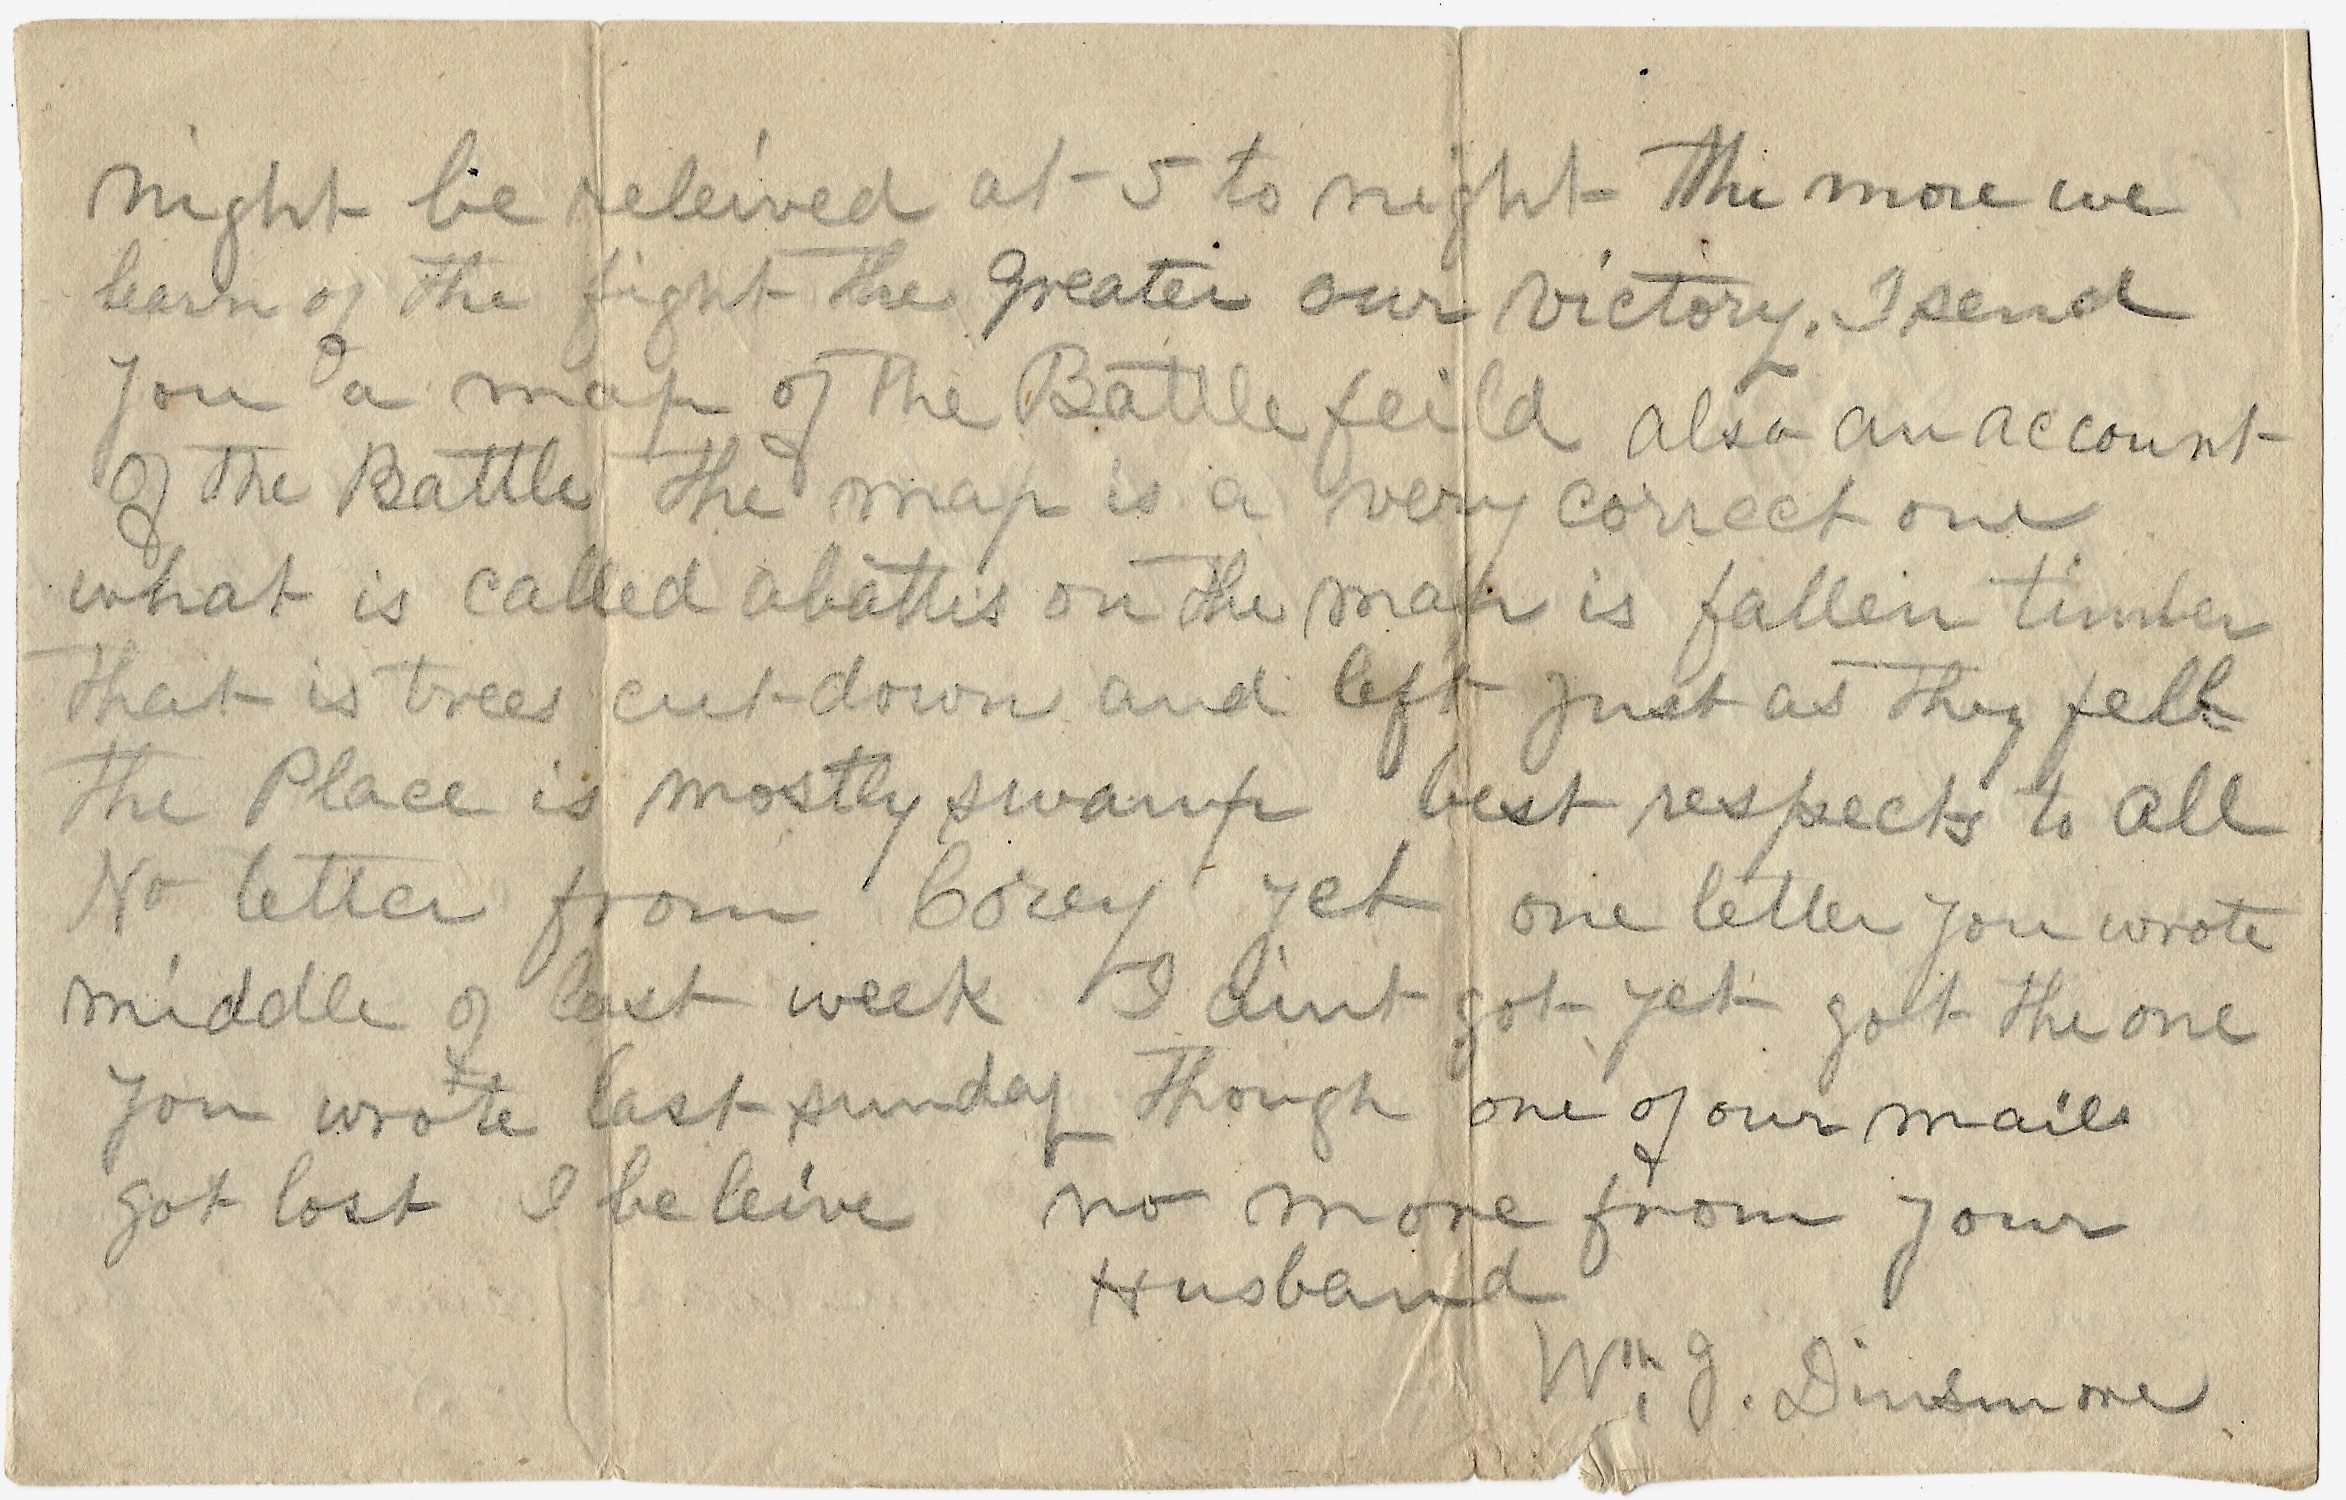 night be releived at 5 to night The more we
learn of the fight the greater our victory. I send
you a map of the Battle feild also an account
of the Battle The map is a very correct one
what is called abattis on the map is fallen timber
that is trees cut down and left just as they fell
the Place is mostly swamp best respects to all
No letter from Corey yet one letter you wrote
middle of last week I aint got yet got the one
you wrote last sunday though one of our mails
got lost I beleive no more from your
Husband
Wm. G. Dinsmore